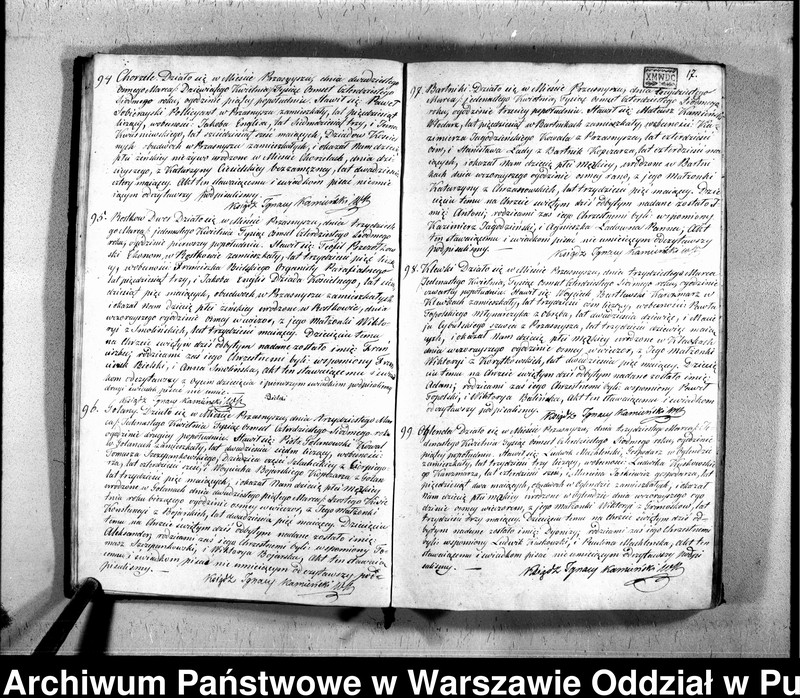 94 Chorzele. Działo się w Mieście Przasnyszu, dnia dwudziestego
ósmego Marca/ Dziewiątego Kwietnia, Tysiąc Ośmset Czterdziestego
Siódmego roku, o godzinie piątej popołudniu. Stawił się Paweł
w Przasnyszu zamieszkały, lat pięćdziesiąt
liczący, w obecności Jakóba lat siedmdziesiąt trzy, i Jana
lat mających, Dziadów Kościel-
nych obudwóch w Przasnyszu zamieszkałych, i okazał Nam dziecię
płci żeńskiej nieżywo urodzone w Mieście Chorzelach, dnia dzi-
siejszego, z Katarzyny bezzamężnej, lat dwadzieścia
cztery mającej. Akt ten stawającemu i świadkom pisać nieumie-
jącym odczytawszy podpisaliśmy.
Ksiądz Ignacy Kamiński
95. Rostkowo Dwór Działo się w Mieście Przasnyszu, dnia trzydzieste-
go Marca/ jedenastego Kwietnia, Tysiąc Ośmset Czterdziestego Siódmego
roku, o godzinie pierwszej popołudniu. Stawił się Teofil
Ekonom, w Rostkowie zamieszkały, lat trzydzieści pięć liczą-
cy, w obecności Franciszka Bielskiego Organisty Parafialnego
lat pięćdziesiąt trzy, i Jakóba Dziada Kościelnego, lat sie-
dmdziesiąt pięć mających, obudwóch w Przasnyszu zamieszkałych,
i okazał Nam dziecię płci żeńskiej urodzone w Rostkowie, dnia
wczorajszego o godzinie ósmej wieczór, z jego Małżonki Wikto-
ryi z Smolińskich, lat trzydzieści mającej. Dziecięciu temu
na Chrzcie świętym dziś odbytym nadane zostało imię
rodzicami zaś jego Chrzestnemi byli: wspomniony Fran-
ciszek Bielski, i Anna Smolińska, Akt ten stawającemu i świad-
kom odczytawszy z oycem dziecięcia i pierwszym świadkiem podpisaliśmy,
drugi świadek pisać nie umie.
Ksiądz Ignacy Kamiński Bielski
96. Golany. Działo się w Mieście Przasnyszu, dnia Trzydziestego Mar-
ca/ Jedenastego Kwietnia Tysiąc Ośmset Czterdziestego Siódmego roku
o godzinie drugiej popołudniu. Stawił się Piotr Golanowski
w Golanach zamieszkały, lat trzydzieści siedm liczący, w obecności
Tomasza Szczepankowskiego, Dziedzica części Szlacheckiej
lat czterdzieści trzy, i Wojciecha Bojarskiego z Golan
lat trzydzieści pięć mających, i okazał Nam dziecię płci męzkiej
urodzone w Golanach dnia dwudziestego piątego Marca/ szóstego Kwie-
tnia roku bieżącego o godzinie ósmej wieczór, z jego Małżonki
Konstancyi z Bojarskich, lat dwadzieścia pięć mającej. Dziecięciu
temu na Chrzcie świętym dziś odbytym nadane zostało imię
Aleksander, rodzicami zaś jego Chrzestnemi byli: wspomniony To-
masz Szczepankowski, i Wiktorya Bojarska, Akt ten stawają-
cemu i świadkom pisać nie umiejącym odczytawszy pod-
pisaliśmy.
Ksiądz Ignacy Kamiński
XMWDC
17.
97. Bartniki. Działo się w Mieście Przasnyszu, dnia trzydziestego
Marca/ jedenastego Kwietnia, Tysiąc Ośmset Czterdziestego Siódmego
roku, o godzinie trzeciej popołudniu. Stawił się Mateusz Kamiński
Włodarz, lat pięćdziesiąt w Bartnikach zamieszkały, w obecności Ka-
zimierza Jagodzińskiego Kowala z Przasnysza, lat czterdzieści
i Stanisława Lady z Bartnik lat czterdzieści ma-
jących, i okazał Nam dziecię płci męzkiej, urodzone w Bartni-
kach dnia wczorajszego o godzinie ósmej rano, z jego Małżonki
Katarzyny z Chrzanowskich, lat trzydzieści pięć mającej. Dzie-
cięciu temu na Chrzcie świętym dziś odbytym nadane zostało I-
mię Antoni, rodzicami zaś jego Chrzestnemi byli: wspomniony
Kazimierz Jagodziński, i Agnieszka Panna, Akt
ten stawającemu i świadkom pisać nie umiejącym odczytawszy
podpisaliśmy.
Ksiądz Ignacy Kamiński
98. Klewki Działo się w Mieście Przasnyszu, dnia Trzydziestego Marca
Jedenastego Kwietnia, Tysiąc Ośmset Czterdziestego Siódmego roku, o godzinie
czwartej popołudniu. Stawił się Wojciech Karczmarz w
Klewkach zamieszkały, lat trzydzieści ośm liczący, w obecności Pawła
Topolskiego Młynarczyka z lat dwadzieścia dziewięć, i Macie-
ja Cybulskiego Szewca z Przasnysza, lat trzydzieści dziewięć mają-
cych, i okazał Nam dziecię płci męzkiej urodzone w Klewkach,
dnia wczorajszego o godzinie ósmej wieczór, z Jego Małżonki
Wiktoryi z lat dwadzieścia pięć mającej. Dziecię-
ciu temu na Chrzcie świętym dziś odbytym nadane zostało imię
Adam, rodzicami zaś jego Chrzestnemi byli wspomniony Paweł
Topolski, i Wiktorya Balińska, Akt ten stawającemu i świadkom
odczytawszy podpisaliśmy.
Ksiądz Ignacy Kamiński
99 Działo się w Mieście Przasnyszu, dnia trzydziestego Marca/ Je-
denastego Kwietnia Tysiąc Ośmset Czterdziestego Siódmego roku, o godzinie
piątej popołudniu. Stawił się Ludwik Gospodarz w
zamieszkały, lat trzydzieści trzy liczący, w obecności Ludwika
go lat czterdzieści i Marcina gospodarza, lat
pięćdziesiąt dwa mających, obudwóch w zamieszkałych, i okazał
Nam dziecię płci męzkiej urodzone w dnia wczorajszego o go-
dzinie ósmej wieczorem, z jego małżonki Wiktoryi z lat
trzydzieści trzy mającej. Dziecięciu temu na Chrzcie świętym dziś od-
bytym nadane zostało imię Ignacy, rodzicami zaś jego Chrzestnemi
byli: wspomniony Ludwik i Paulina Akt ten
stawającemu i świadkom pisać nie umiejącym odczytawszy podpi-
saliśmy.
Ksiądz Ignacy Kamiński
Archiwum Państwowe w Warszawie Oddział w Pu